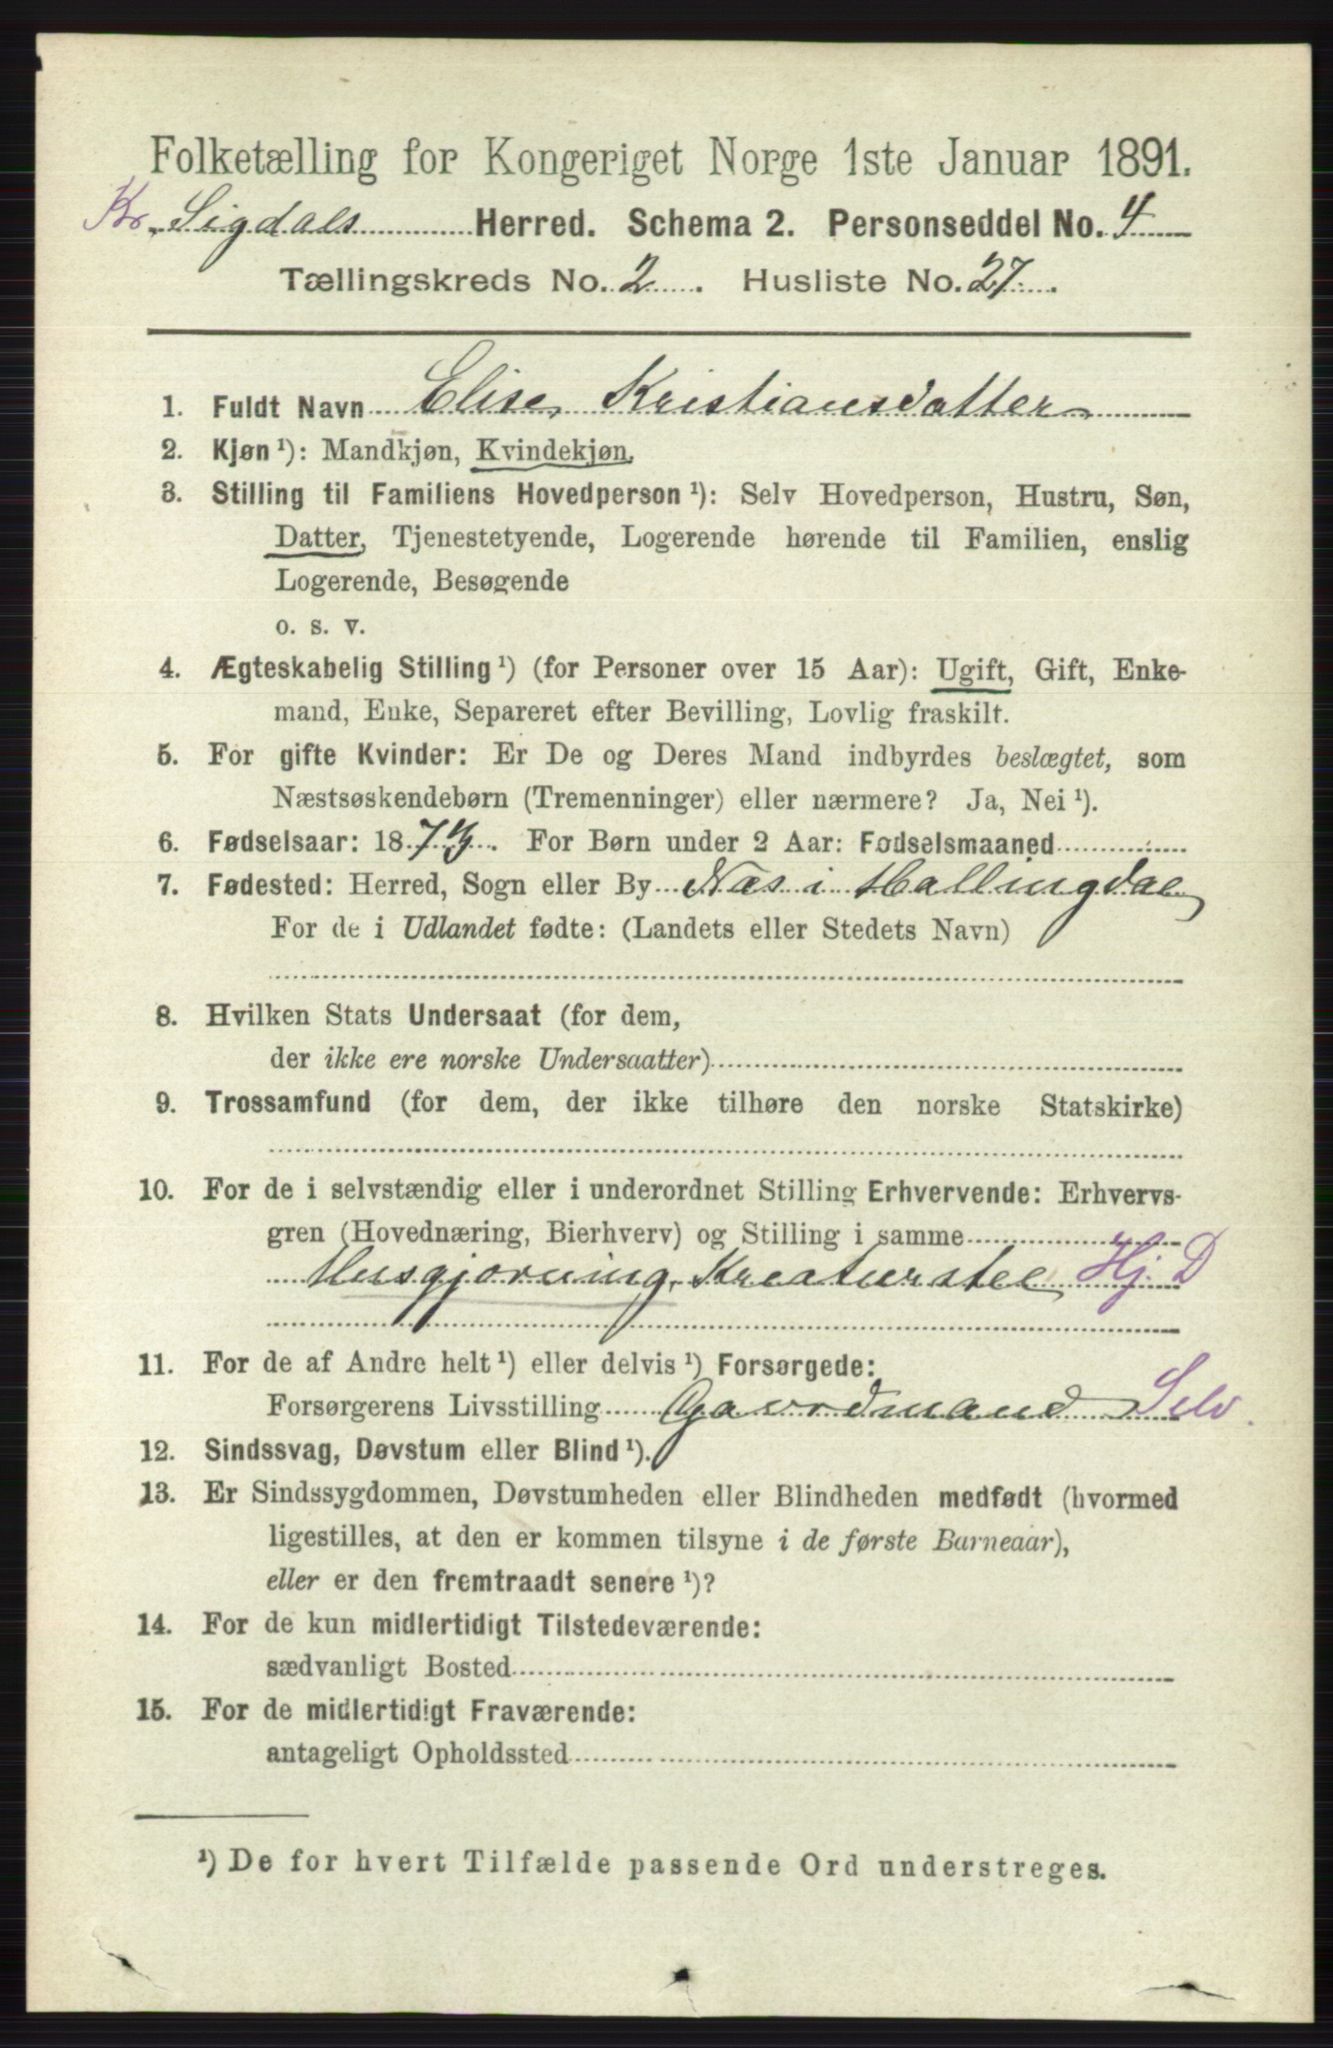 Folketælling for Kongeriget Norge 1ste Januar 1891.
Kr. Sigdals Herred. Schema 2. Personseddel No. 4
Tællingskreds No. 2. Husliste No. 27.
1. Fuldt Navn Elise Kristiansdatter
2. Kjøn ¹): Mandkjøn, Kvindekjøn.
3. Stilling til Familiens Hovedperson ¹): Selv Hovedperson, Hustru, Søn,
Datter, Tjenestetyende, Logerende hørende til Familien, enslig
Logerende, Besøgende
o. s. v.
4. Ægteskabelig Stilling ¹) (for Personer over 15 Aar): Ugift, Gift, Enke-
mand, Enke, Separeret efter Bevilling, Lovlig fraskilt.
5. For gifte Kvinder: Er De og Deres Mand indbyrdes beslægtet, som
Næstsøskendebørn (Tremenninger) eller nærmere? Ja, Nei ¹).
6. Fødselsaar: 187. For Børn under 2 Aar: Fødselsmaaned
7. Fødested: Herred, Sogn eller By Næs i Hallingdal
For de i Udlandet fødte: (Landets eller Stedets Navn)
8. Hvilken Stats Undersaat (for dem,
der ikke ere norske Undersaatter)
9. Trossamfund (for dem, der ikke tilhøre den norske Statskirke)
10. For de i selvstændig eller i underordnet Stilling Erhvervende: Erhvervs-
gren (Hovednæring, Bierhverv) og Stilling i samme
Husgjørning, Kreaturstel Hj. D
11. For de af Andre helt ¹) eller delvis ¹) Forsørgede:
Forsørgerens Livsstilling Gaardmand Selv.
12. Sindssvag, Døvstum eller Blind ¹).
13. Er Sindssygdommen, Døvstumheden eller Blindheden medfødt (hvormed
ligestilles, at den er kommen tilsyne i de første Barneaar),
eller er den fremtraadt senere ¹)?
14. For de kun midlertidigt Tilstedeværende:
sædvanligt Bosted
15. For de midlertidigt Fraværende:
antageligt Opholdssted
¹) De for hvert Tilfælde passende Ord understreges.